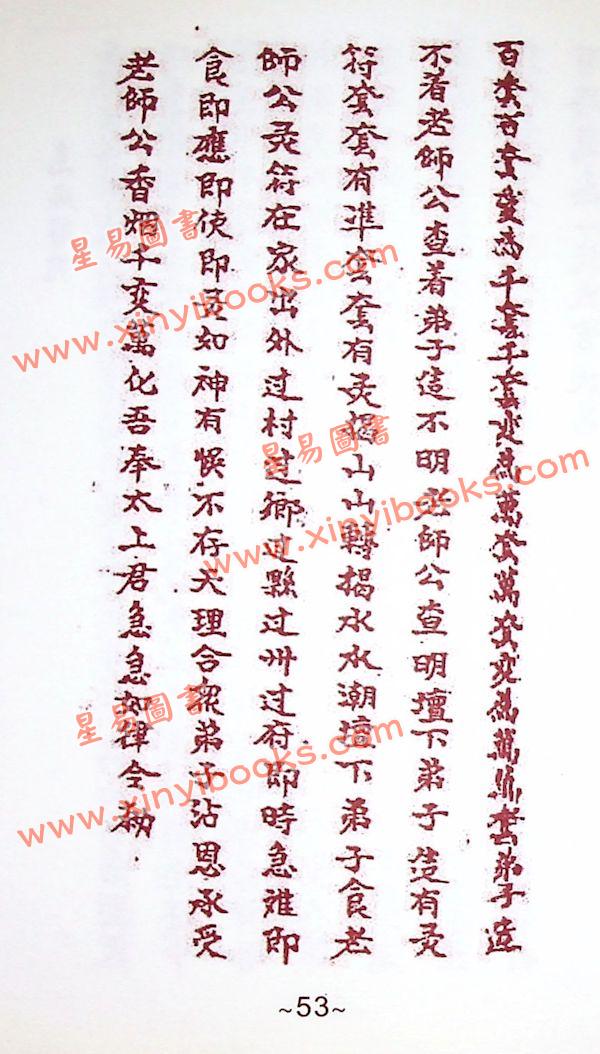 百套百套变为千套千套变為萬套萬套变為萬萬套弟子造
不着老師公查着弟子造不明老師公查明壇下弟子造有灵
符套套有準套套有灵揭山山轉揭水水潮壇下弟子食老
師公灵符在家出外过村过鄉过縣过州过府即時急难即
食即應即使即灵如神有悞不存天理合眾弟子沾恩承受
老師公香烟千変萬化吾奉太上君急急如律令勅
星易圖書
www.xinyibooks.com
星易圖書
www.xinyibooks.com
星易圖書
www.xinyibooks.com
~53~